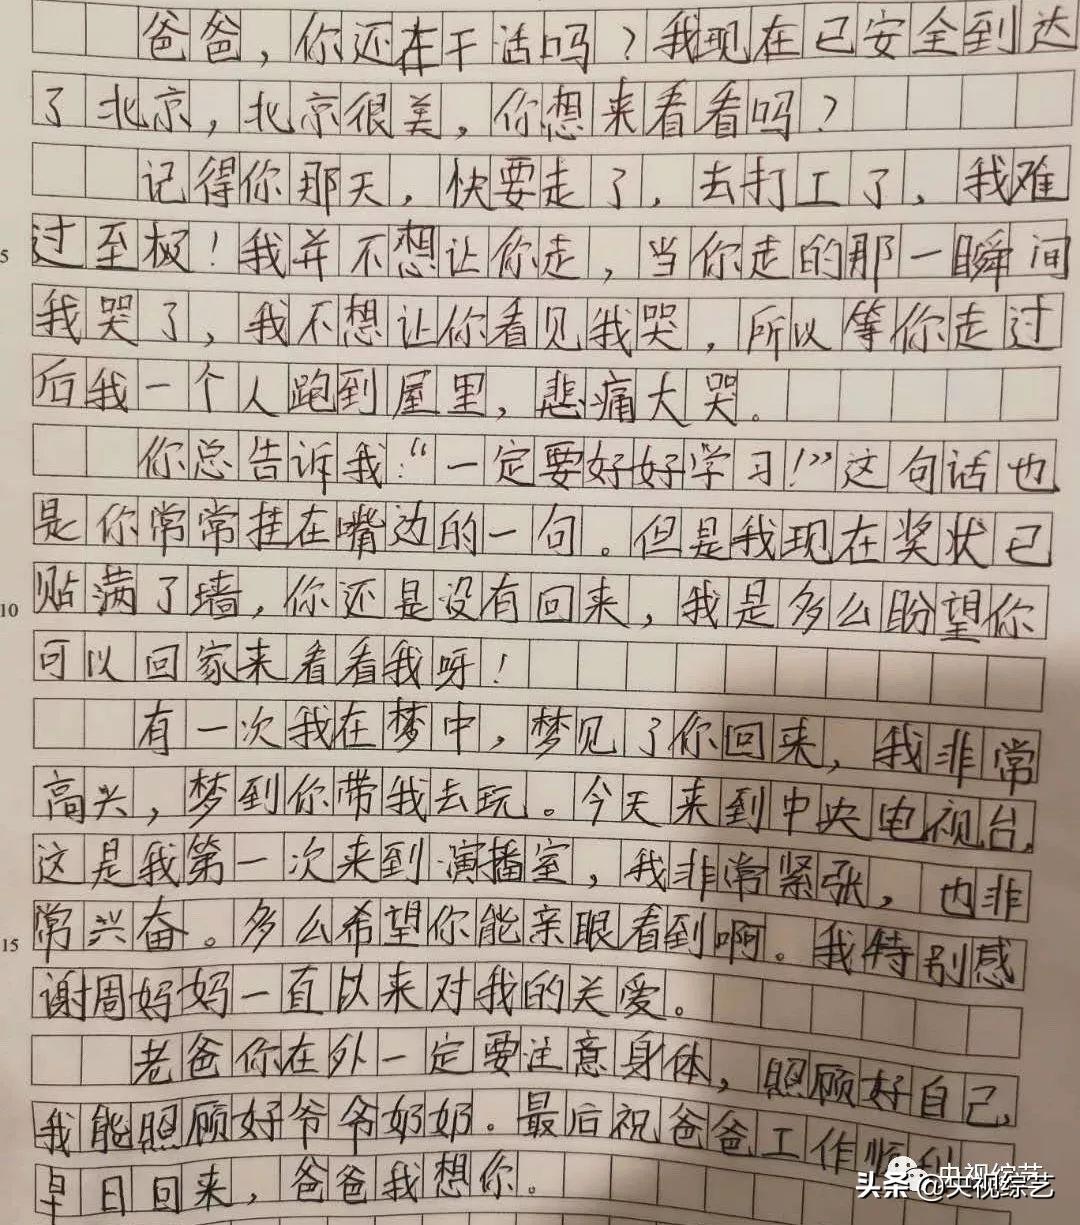 爸爸，你还在干活吗？我现在已安全到达
了北京，北京很美，你想来看看吗？
记得你那天，快要走了，去打工了，我难
5 过至极！我并不想让你走，当你走的那一瞬间
我哭了，我不想让你看见我哭，所以等你走过
后我一个人跑到屋里，悲痛大哭。
你总告诉我：“一定要好好学习！”这句话也
是你常常挂在嘴边的一句。但是我现在奖状已
10 贴满了墙，你还是没有回来，我是多么盼望你
可以回家来看看我呀！
有一次我在梦中，梦见了你回来，我非常
高兴，梦到你带我去玩。今天来到中央电视台，
这是我第一次来到演播室，我非常紧张，也非
15 常兴奋。多么希望你能亲眼看到啊。我特别感
谢周妈妈一直以来对我的关爱。
老爸你在外一定要注意身体，照顾好自己，
我能照顾好爷爷奶奶。最后祝爸爸工作顺利
早日回来，爸爸我想你。
央视综艺
头条@央视综艺